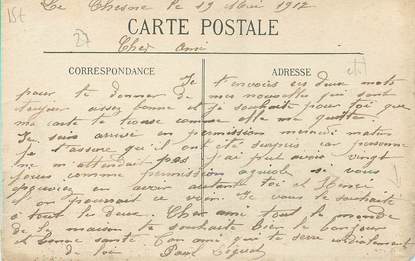 Le Chesne le 19 Mai 1912
CARTE POSTALE
Cher ami
CORRESPONDANCE
ADRESSE
Je t'envoies ces deux mots
pour te donner de mes nouvelles qui sont
toujour assez bonne et je souhait pour toi que
ma carte te trouve comme elle me quitte.
Je suis arrivé en permission mercredi matin
Je t'assure qu'il ont été surpris car personne
ne m'attendait pas j'ai put avoir vingt
jours comme permission agricole si vous
pouviez en avoir autant toi et Henri
et on pourrait ce voir. Je vous le souhaite
à tout les deux. Cher ami tout le monde
de la maison te souhaite bien le bonjour
et bonne santé Ton ami qui te serre cordialement
de loi Paul